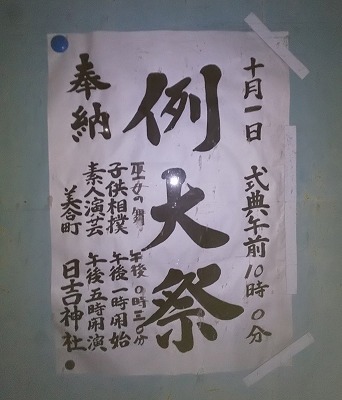 十月一日 式典午前10時0分
例大祭
奉納
巫女の舞 午後0時三0分
子供相撲 午後一時開始
素人演芸 午後五時開演
美合町 日吉神社